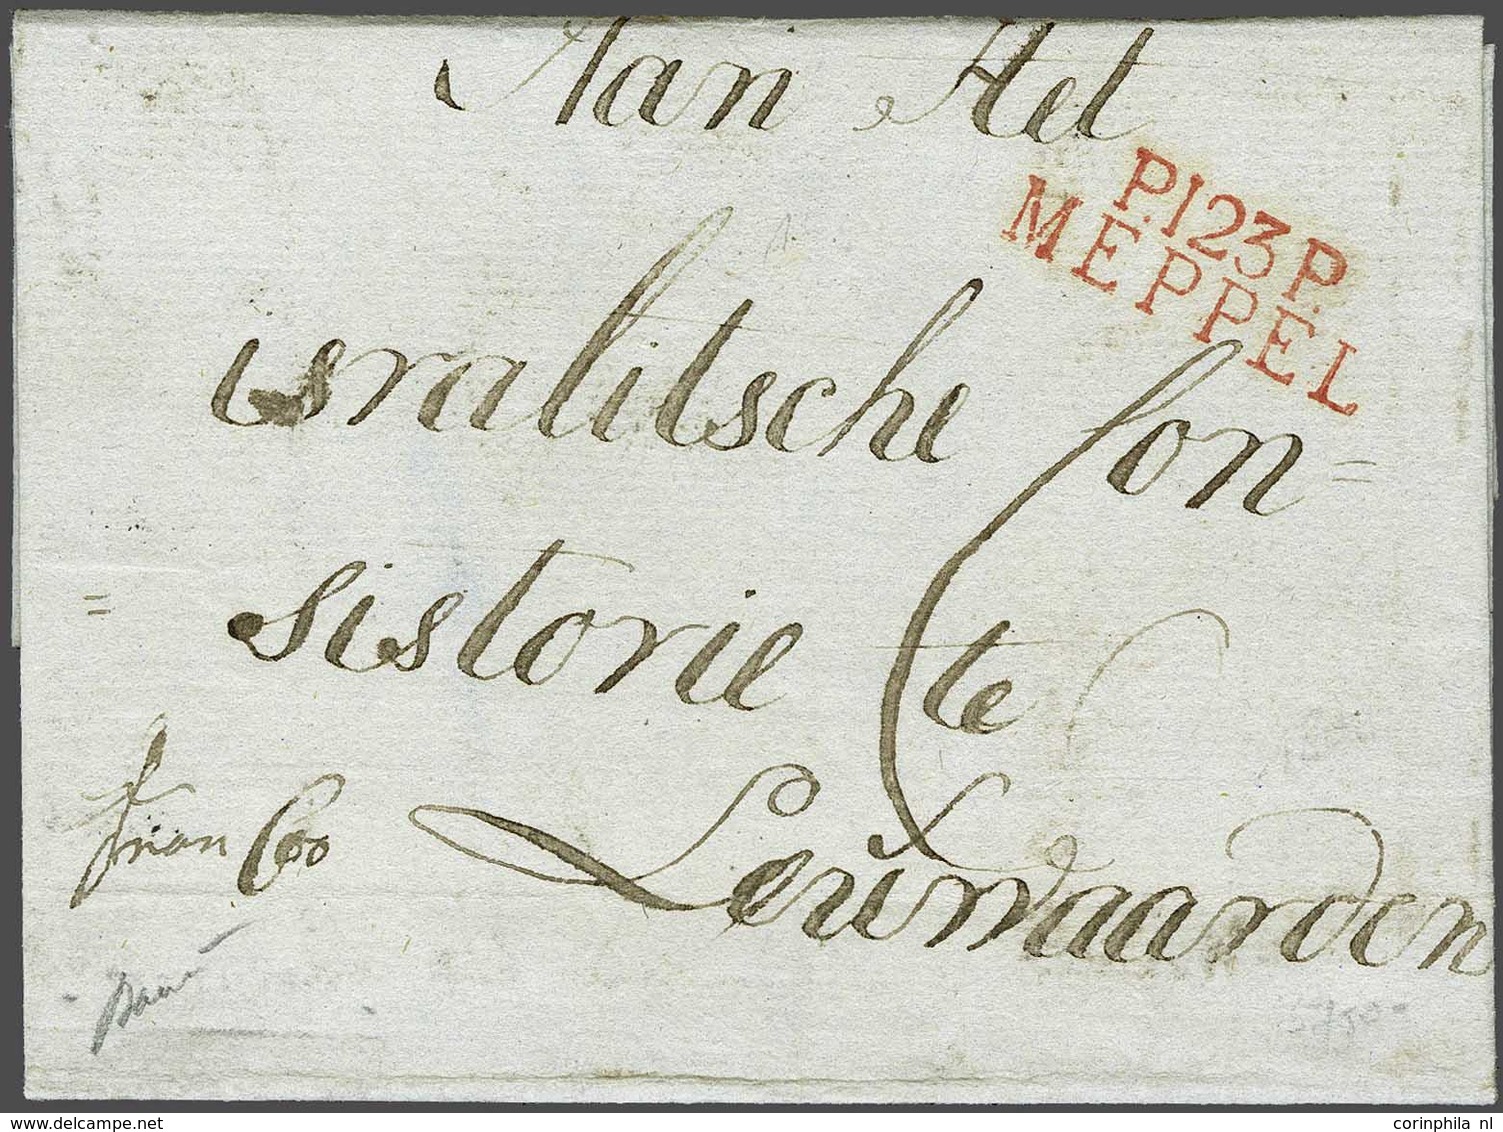 Aan Het
P.123P.
MEPPEL
isralitsche Con=
= sistorie te
Leeuwaarden
franco
www.delcampe.net
corinphila nl